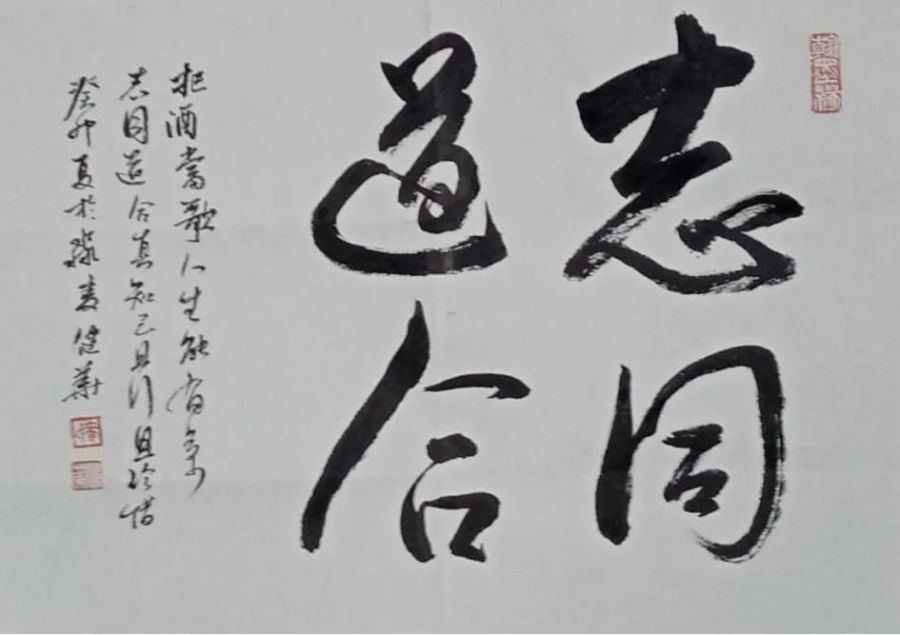 志同
道合
把酒当歌人生能有几
志同道合真知己且行且珍惜
癸卯夏於 建华